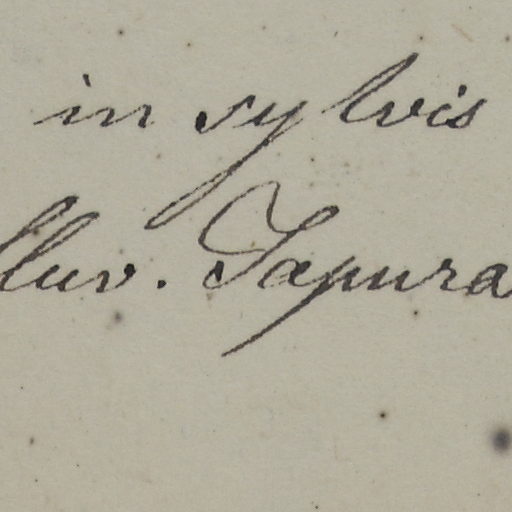 in sylvis
fluv. Japura